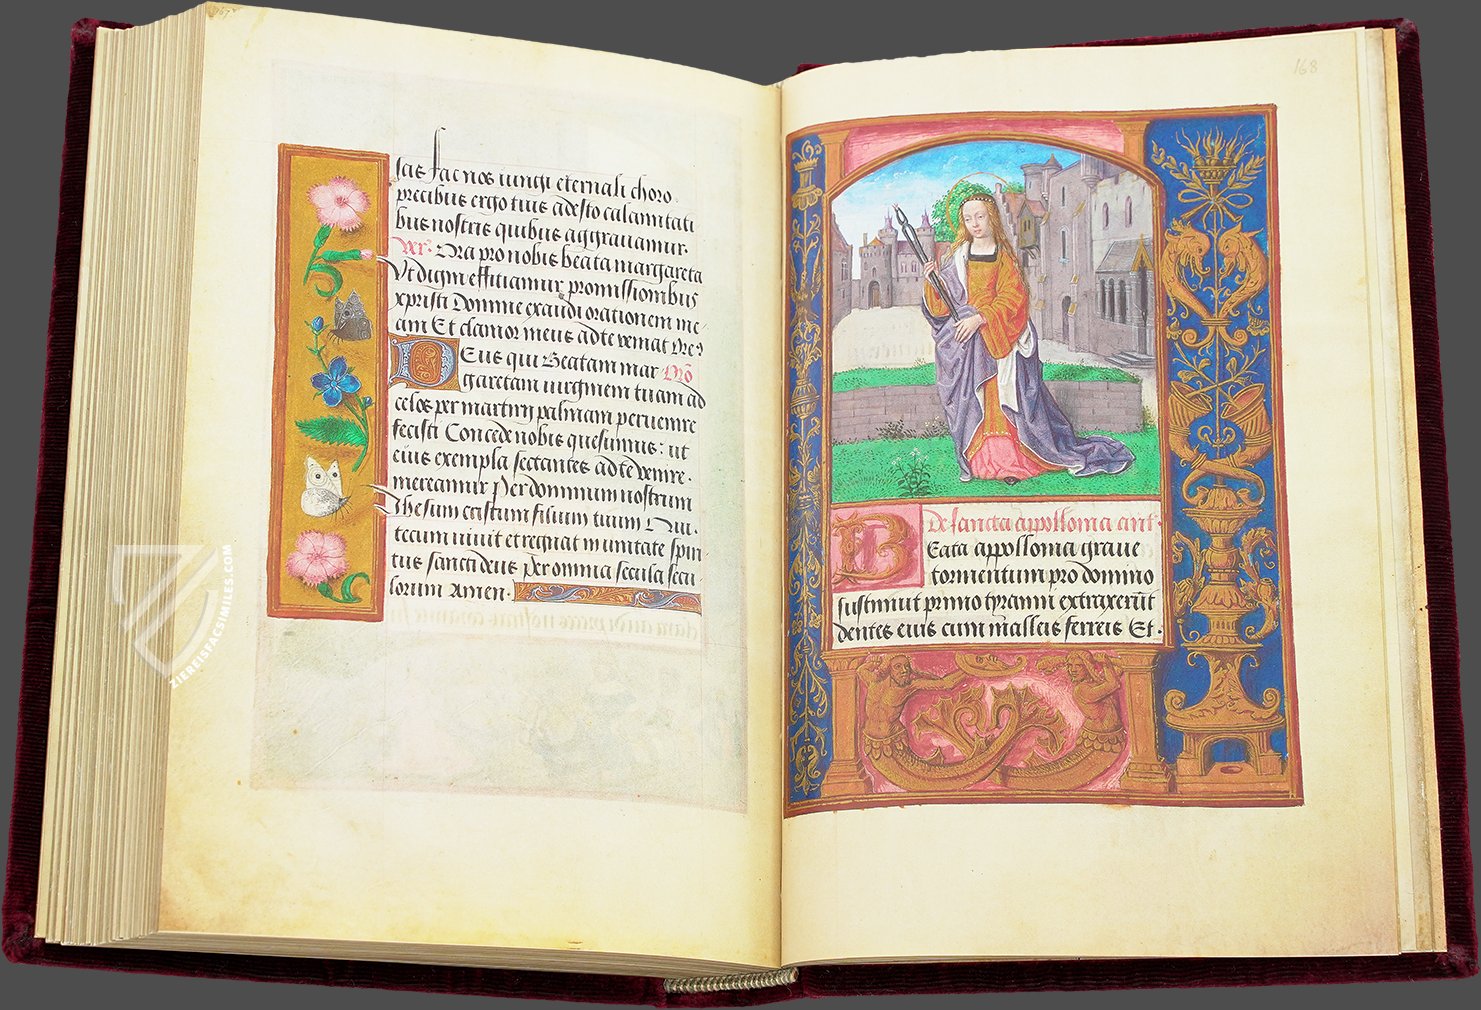 167v
scis fac nos iungi eternali choro.
precibus ergo tuis adesto calamitati
bus nostris quibus aggravamur.
Vr. Ora pro nobis beata margareta
Vt digni efficiamur promissionibus
xpristi Domine exaudi orationem me
am Et clamor meus ad te veniat Ore?
DEus qui Beatam mar Orō
garetam virginem tuam ad
celos per martirij palmam pervenire
fecisti Concede nobis quesumus: ut
eius exempla sectantes ad te venire.
mereamur Per dominum nostrum
Jhesum cristum filium tuum Qui.
tecum vivit et regnat in unitate spiri
tus sancti deus Per omnia secula secu
lorum Amen.
168
De sancta appollonia ant.
BEata appollonia grave
tormentum pro domino
sustinuit primo tyranni extraxerūt
dentes eius cum malleis ferreis Et.
ZIEREISFACSIMILES.COM